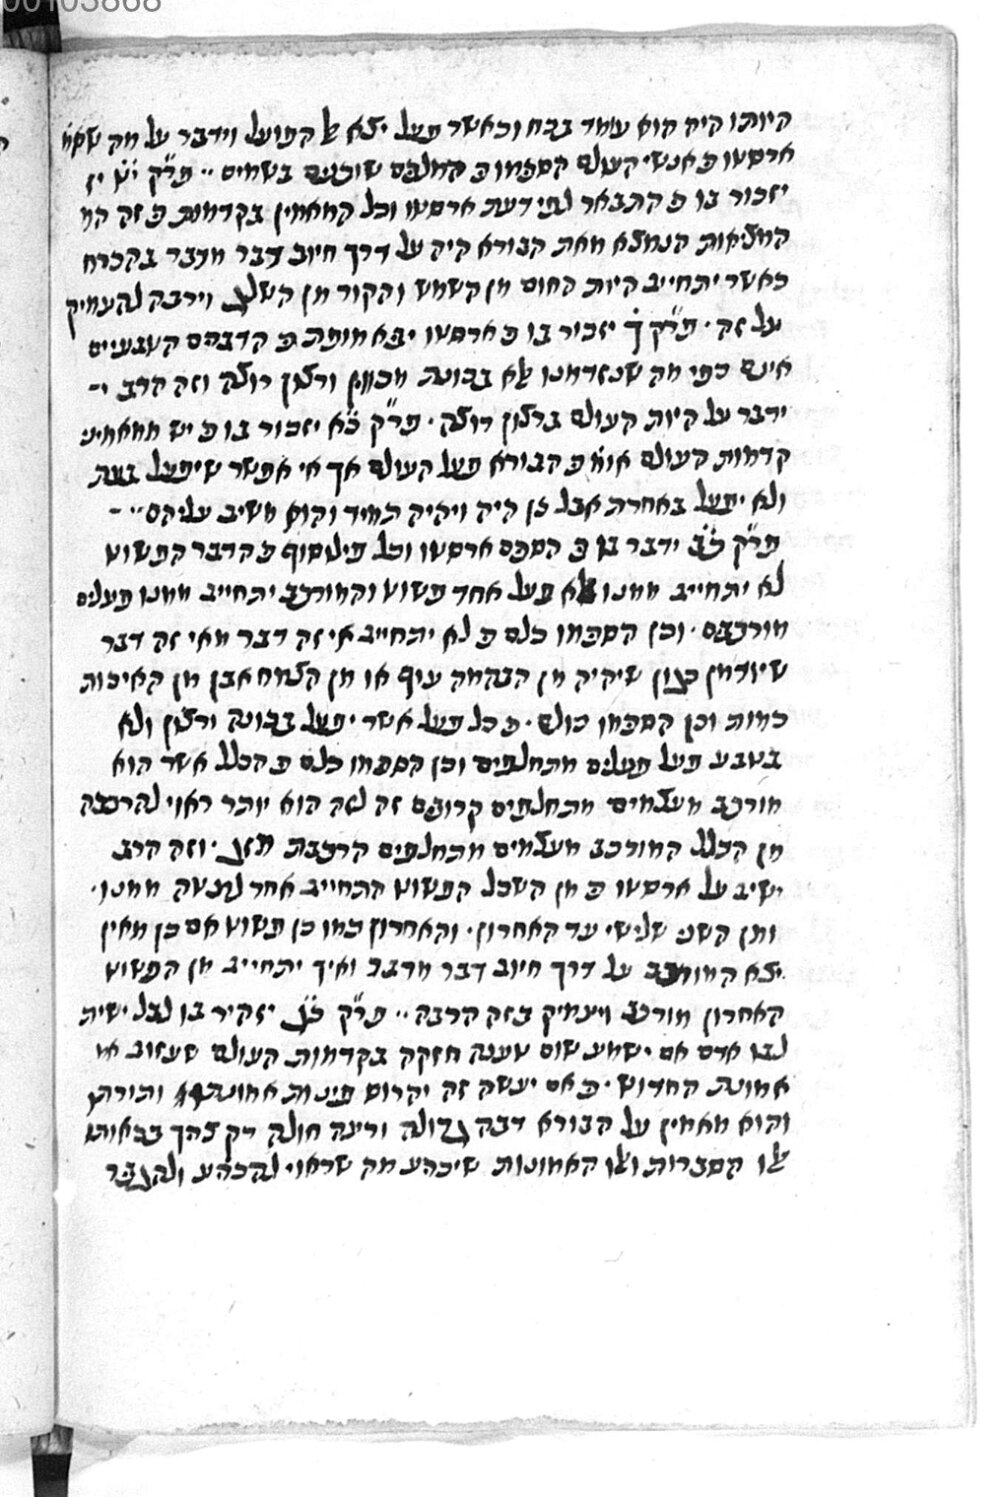 00103868
היותו היה הוא עומד בכח וכאשר פעל יצא אל הפועל וידבר על מה שאמ'
ארסטו כ אנשי העולם הסכמו כ המלאכים שוכנים בשמים ·· פר"ק י"ט יז
יזכור בו כ התבאר לפי דעת ארסטו וכל המאמין בקדמות כ זה המ
המציאות הנמצא מאת הבורא היה על דרך חיוב דבר מדבר בהכרח
כאשר יתחייב היות החום מן השמש והקור מן השלג וירבה להעמיק
על זה · פר"ק ך יזכור בו כ ארסטו יבא מופת כ הדברים הטבעיים
אינם כפי מה שנזדמנו אלא בכונת מכוון ורצון רוצה וזה הרב י-
ידבר על היות העולם ברצון רוצה · פר"ק כ"א יזכור בו כ יש ממאמיני
קדמות העולם אומ' כ הבורא פעל העולם אך אי אפשר שיפעל בעת
ולא יפעל באחרת אבל כן היה ויהיה תמיד והוא משיב עליהם ·· -
פר"ק כ"ב ידבר בו כ הסכם ארסטו וכל פילוסוף כ הדבר הפשוט
לא יתחייב ממנו אלא פעל אחד פשוט והמורכב יתחייב ממנו פעלים
מורכבים · וכן הסכמו כלם כ לא יתחייב אי זה דבר מאי זה דבר
שיזדמן כגון שיהיה מן הבהמה עוף או מן הצמח אבן מן האיכות
כמות וכן הסכמו כולם · כ כל פעל אשר יפעל בכונה ורצון ולא
בטבע פעל פעלים מתחלפים וכן הסכמו כלם כ הכלל אשר הוא
מורכב מעצמים מתחלפים קרובים זה לזה הוא יותר ראוי להרכבה
מן הכלל המורכב מעצמים מתחלפים הרכבת מזג · וזה הרב
ישיב על ארסטו כ מן השכל הפשוט התחייב אחר לנעשה ממנו ·
ומן השני שלישי עד האחרון · והאחרון כמו כן פשוט אם כן מאין
יצא המורכב על דרך חיוב דבר מדבר ואיך יתחייב מן הפשוט
האחרון מורכב ויעמיק בזה הרבה ·· פר"ק כ"ג יזהיר בו לבל ישית
לבו אדם אם ישמע שום טענה חזקה בקדמות העולם שעזוב או
אמונת החדוש · כ אם יעשה זה יהרוס פינות אמונתו ותורתו
והוא מאמין על הבורא דבה גדולה ורעה חולה רק צריך בבאותו
אלו הסברות ואלו האמונות שיכריע מה שראוי להכריע ולהגביר